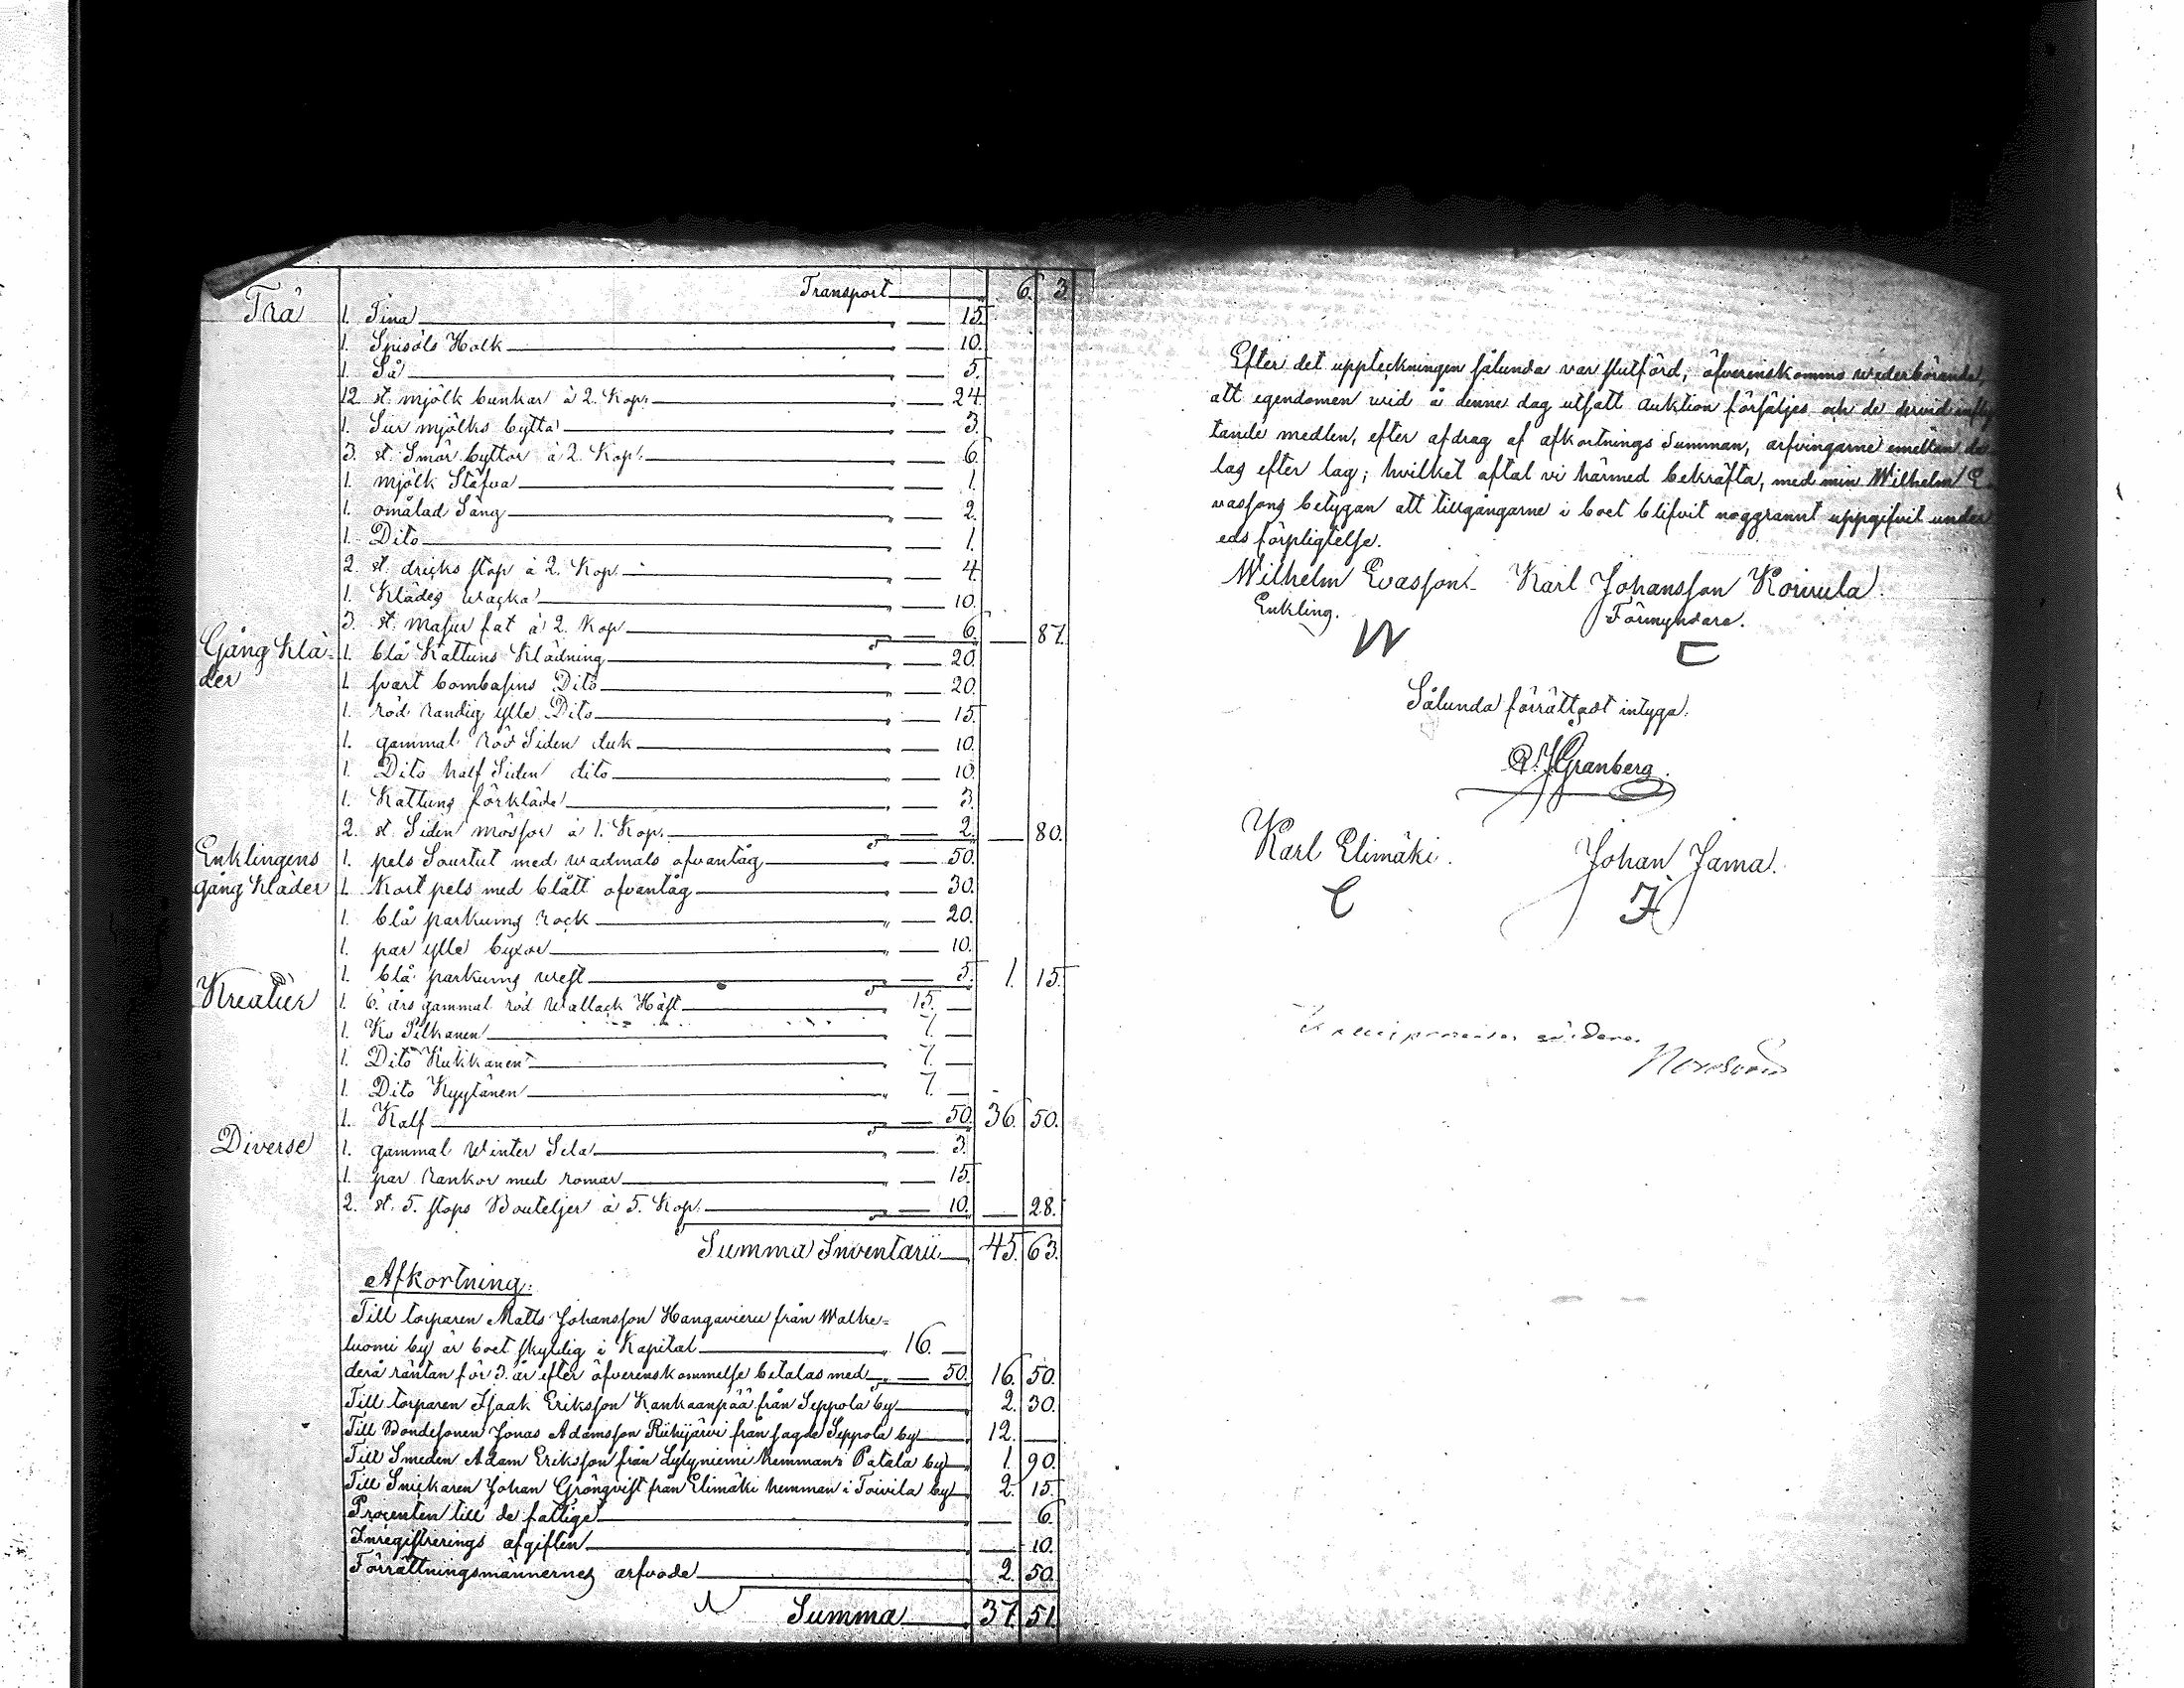 Transport 6. 3
Trä 1. Tina 15.
1. Spisöls Holk 10.
1. Så 5.
12 st. mjölk bunkar à 2. Kop. 24
1. Sur mjölks bytta 3.
3. st. Smör byttor à 2. Kop. 6.
1. mjölk Stäfva 1.
1. omålad Säng 2.
1. Dito 1.
2. st. dricks stop à 2. Kop. 4.
1. Klädes wacka 10.
3. st. Masur fat à 2. Kop 6. — 87.
Gång Klä=
der
1. blå Kattuns Klädning 20.
1. svart bombasins Dito 20.
1. röd randig ylle Dito 15.
1. gammal röd Siden duk 10.
1. Dito half Siden dito 10.
1. Kattuns förkläde 3.
2. st. Siden mössor à 1. Kop. 2. — 80.
Enklingens
gång Kläder
1. pels Sourtut med wadmals ofvantåg 50.
1. Kort pels med blått ofvantåg 30.
1. blå parkums Rock 20.
1. par ylle byxor 10.
1. blå parkums west 5. 1. 15.
Kreatur 1. 6. års gammal röd Wallack Häst 15. —
1. Ko Silkanen 7. —
1. Dito Kukkanen 7. —
1. Dito Kyytänen 7. —
1. Kalf 50. 36. 50.
Diverse 1. gammal Winter Sela 3.
1. par Rankor med romar 15.
2. st. 5. stops Bouteljer à 5. Kop. 10. — 28.
Summa Inventarii 45. 63.
Afkortning:
Till torparen Matts Johansson Hangavieru från Walke=
luomi by är boet skyldig i Kapital 16. —
derå räntan för 3. år efter öfverenskommelse betalas med 50. 16. 50.
Till torparen Isaak Eriksson Kankaanpää från Seppola by 2. 30.
Till Bondesonen Jonas Adamsson Riihijärvi från sagde Seppola by 12. —
Till Smeden Adam Eriksson från Lylyniemi hemman i Patala by 1. 90.
Till Snickaren Johan Grönqvist från Elimäki hemman i Toivila by 2. 15.
Procenten till de fattige — 6.
Inregistrerings afgiften — 10.
Förrättningsmännernes arfvode 2. 50.
Summa 37. 51.
Efter det uppteckningen sålunda var slutförd, öfverenskommo wederbörande,
att egendomen wid å denne dag utsatt auktion försäljes och de dervid infly
tande medlen, efter afdrag af afkortnings Summan, arfvingarne emellan de
las efter lag; hvilket aftal vi härmed bekräfta, med min Wilhelm E
vassons betygan att tillgångarne i boet blifvit noggrannt uppgifvit under
eds förpligtelse.
Wilhelm Evasson Karl Johansson Koivula.
Enkling. Förmyndare.
W
Sålunda förrättadt intyga.
Granberg.
Karl Elimäki. Johan Jama.